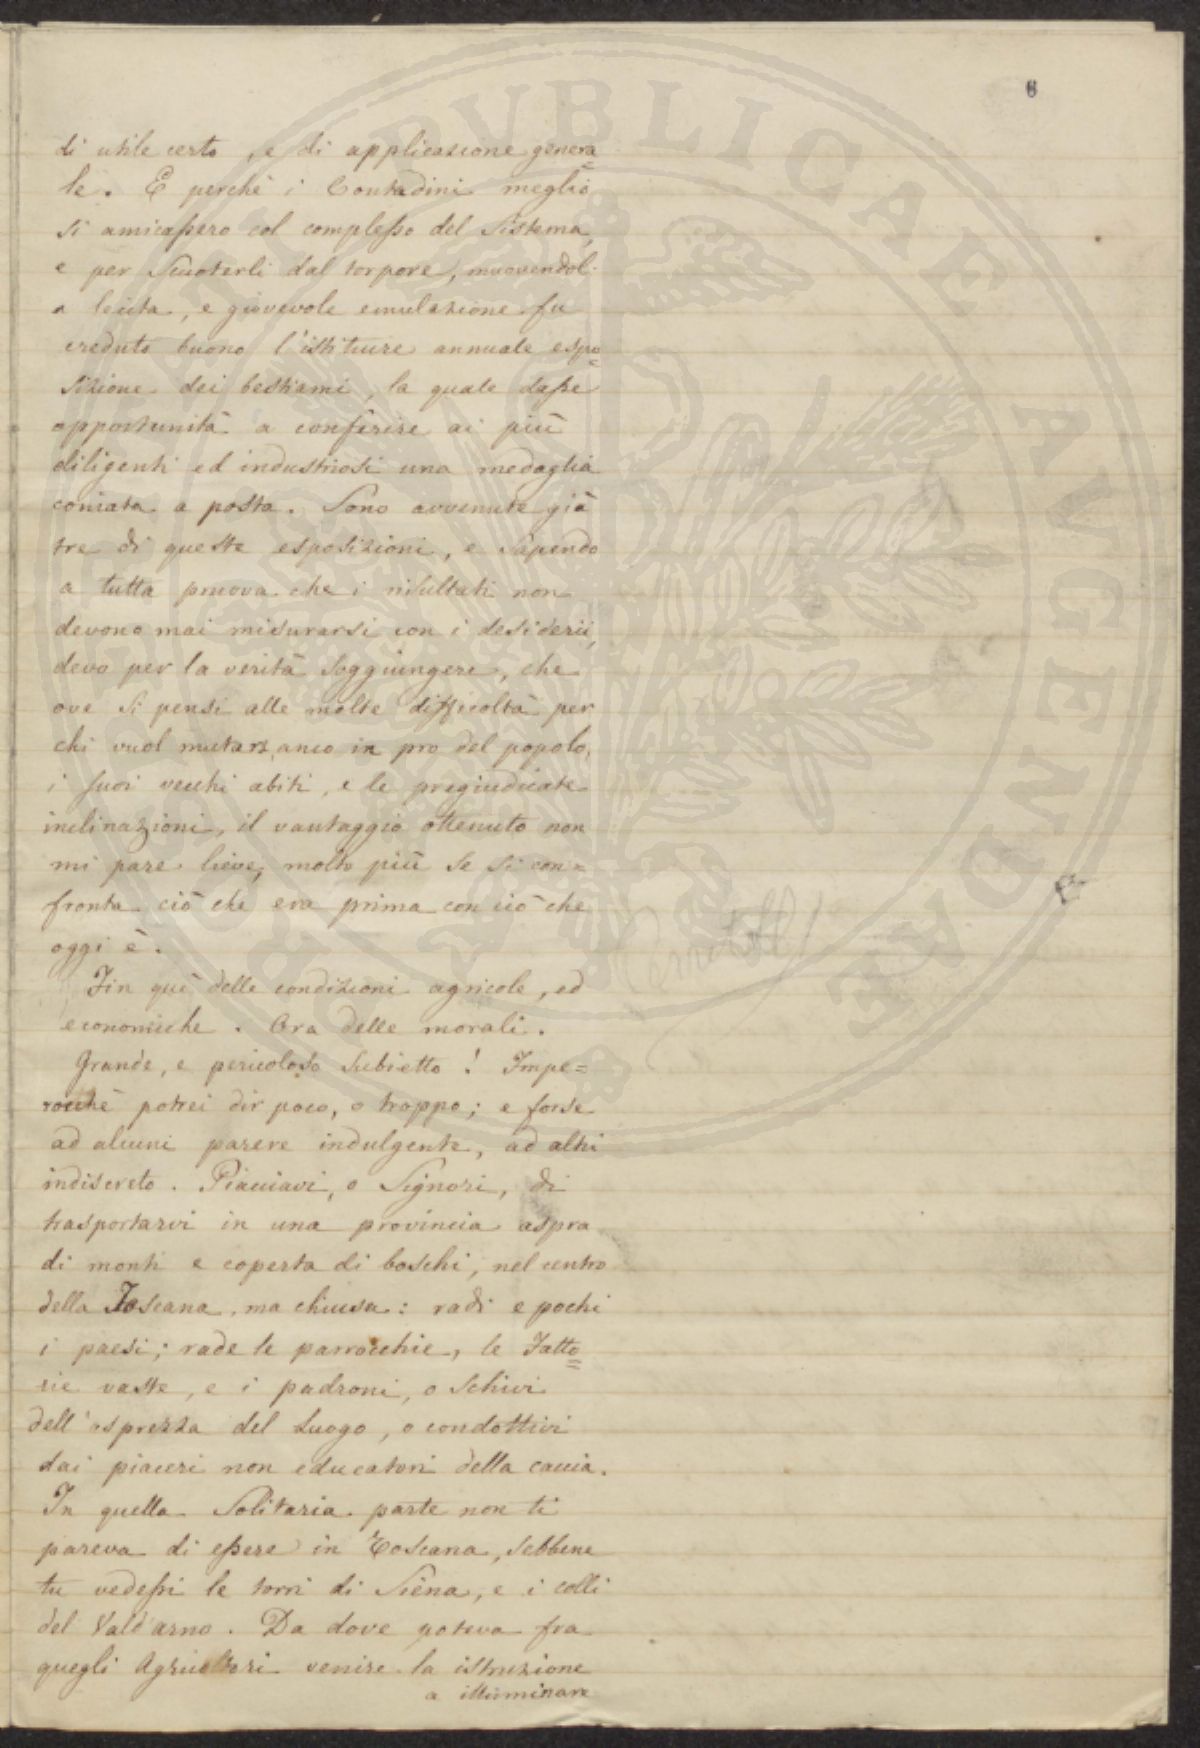 6
di utile certo, e di applicazione genera=
le. E perchè i Contadini meglio
si amicassero col complesso del sistema,
e per scuoterli dal torpore, muovendoli
a lecita, e giovevole emulazione fu
creduto buono l'istituire annuale espo=
sizione dei bestiami, la quale dasse
opportunità a conferire ai più
diligenti ed industriosi una medaglia
coniata a posta. Sono avvenute già
tre di queste esposizioni, e sapendo
a tutta pruova che i risultati non
devono mai misurarsi con i desiderii,
devo per la verità soggiungere, che
ove si pensi alle molte difficoltà per
chi vuol mutare, anco in pro del popolo,
i suoi vecchi abiti, e le pregiudicate
inclinazioni, il vantaggio ottenuto non
mi pare lieve, molto più se si con=
fronta ciò che era prima con ciò che
oggi è.
Fin quì delle condizioni agricole, ed
economiche. Ora delle morali.
Grande, e pericoloso subietto! Impe=
rocchè potrei dir poco, o troppo; e forse
ad alcuni parere indulgente, ad altri
indiscreto. Piacciavi, o Signori, di
trasportarvi in una provincia aspra
di monti e coperta di boschi, nel centro
della Toscana, ma chiusa: radi e pochi
i paesi; rade le parrocchie, le Fatto=
rie vaste, e i padroni, o schivi
dell'asprezza del Luogo, o condottivi
dai piaceri non educatori della caccia.
In quella solitaria parte non ti
pareva di essere in Toscana, sebbene
tu vedessi le torri di Siena, e i colli
del Vald'arno. Da dove poteva fra
quegli Agricoltori venire la istruzione
a illuminare
PUBLICAE AVGENDAE